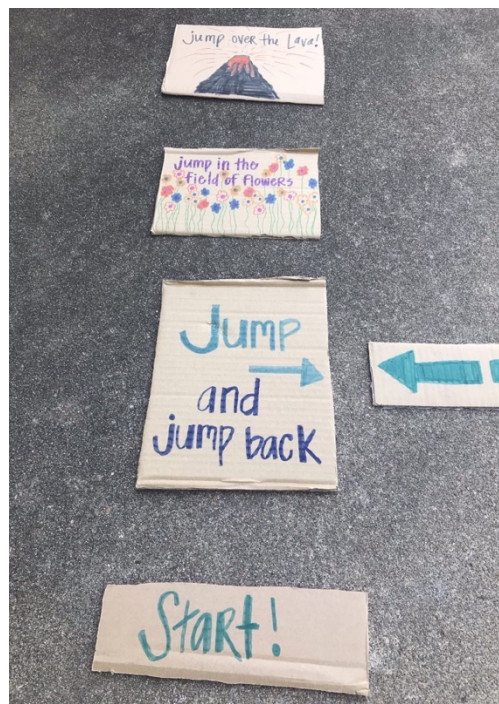 jump over the Lava!
jump in the
field of flowers
Jump
and
jump back
Start!